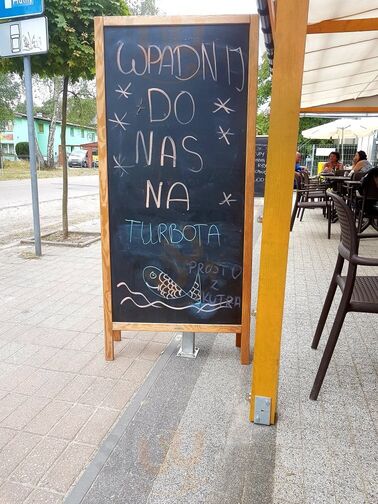 WPADNIJ
DO
NAS
NA
TURBOTA
PROSTO
Z
KUTRA